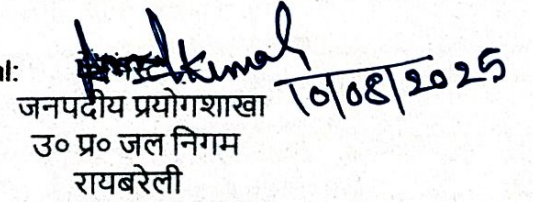 al: kumar 10/08/2025
जनपदीय प्रयोगशाखा
उ० प्र० जल निगम
रायबरेली